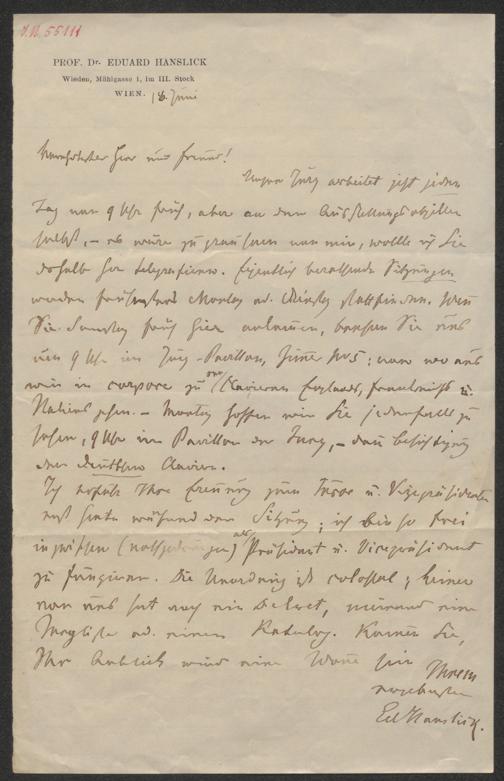 I.N. 55111
PROF. Dr. EDUARD HANSLICK
Wieden, Mühlgasse 1, im III. Stock
WIEN. 18. Juni
Verehrtester Herr und Freund!
Unsere Jury arbeitet jetzt jeden
Tag von 9 Uhr früh, aber an den Ausstellungsobjekten
selbst, – es wäre grausam von mir, wollte ich Sie
deshalb her telegrafieren. Eigentlich berathende Sitzungen
werden frühestens Montag od. Dinstag stattfinden. Wenn
Sie Samstag früh hier ankommen, Sie uns
um 9 Uhr im Jury-Pavillon, Zimmer No 5; von wo aus
wir in corpore zu den Clavieren Englands, Frankreichs u.
Italiens gehen. – Montag hoffen wir Sie jedenfalls zu
sehen, 9 Uhr im Pavillon der Jury, – dann Besichtigung
der deutschen Claviere.
Ich erfuhr Ihre Ernennung zum Juror u. Vizepräsidenten
erst heute während der Sitzung; ich bin so frei
inzwischen (nothgedrungen) als Präsident u. Vicepräsident
zu fungiren. Die Unordnung ist colossal; keiner
von uns hat noch ein Dekret, niemand eine
od. einen Katalog. Kommen Sie,
Ihr Anblick wird eine Wonne sein Ihrem
ergebensten
Ed Hanslick.